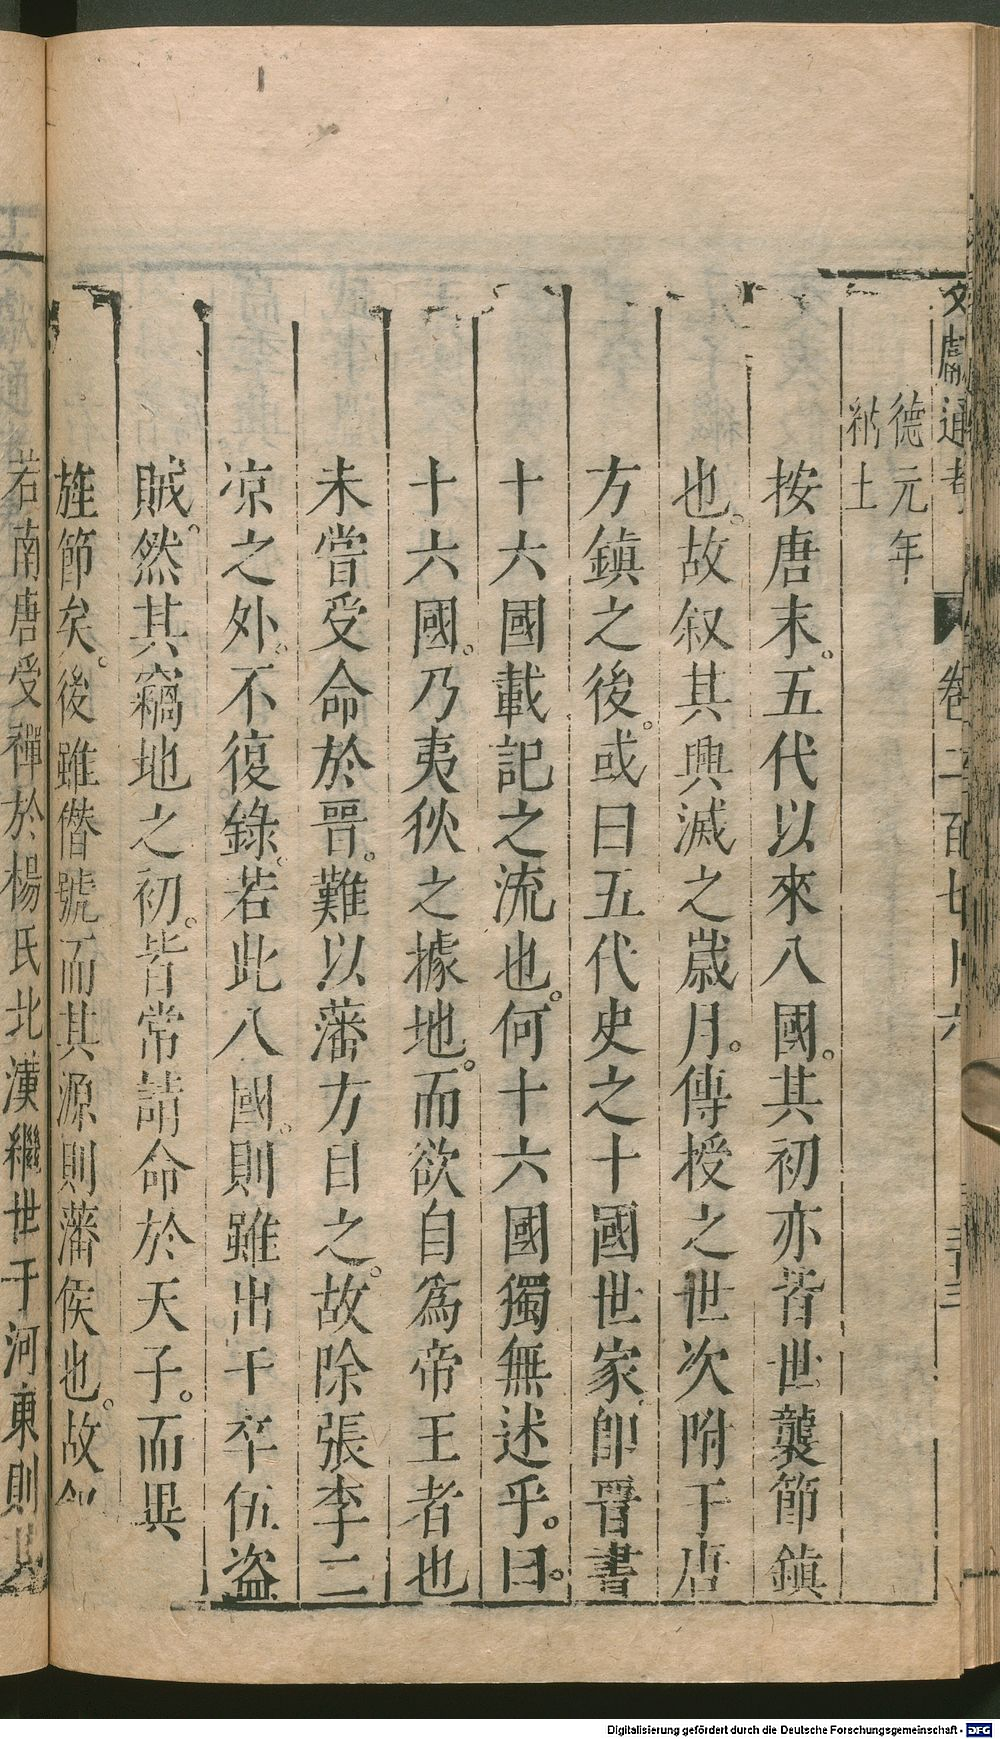 文獻通考 卷二百七十六
德元年
納土
按唐末。五代以來八國。其初亦皆世襲節鎮
也。故叙其興滅之歲月。傳授之世次附于唐
方鎮之後。或曰五代史之十國世家。卽晉書
十六國載記之流也。何十六國獨無述乎。曰。
十六國。乃夷狄之據地。而欲自爲帝王者也
未嘗受命於晉。難以藩方目之。故除張李二
凉之外。不復錄。若此八國。則雖出于卒伍盗
賊。然其竊地之初。皆常請命於天子。而畀
旌節矣。後雖僭號而其源則藩侯也。故
若南唐受禪於楊氏北漢繼世于河東則
Digitalisierung gefördert durch die Deutsche Forschungsgemeinschaft - DFG